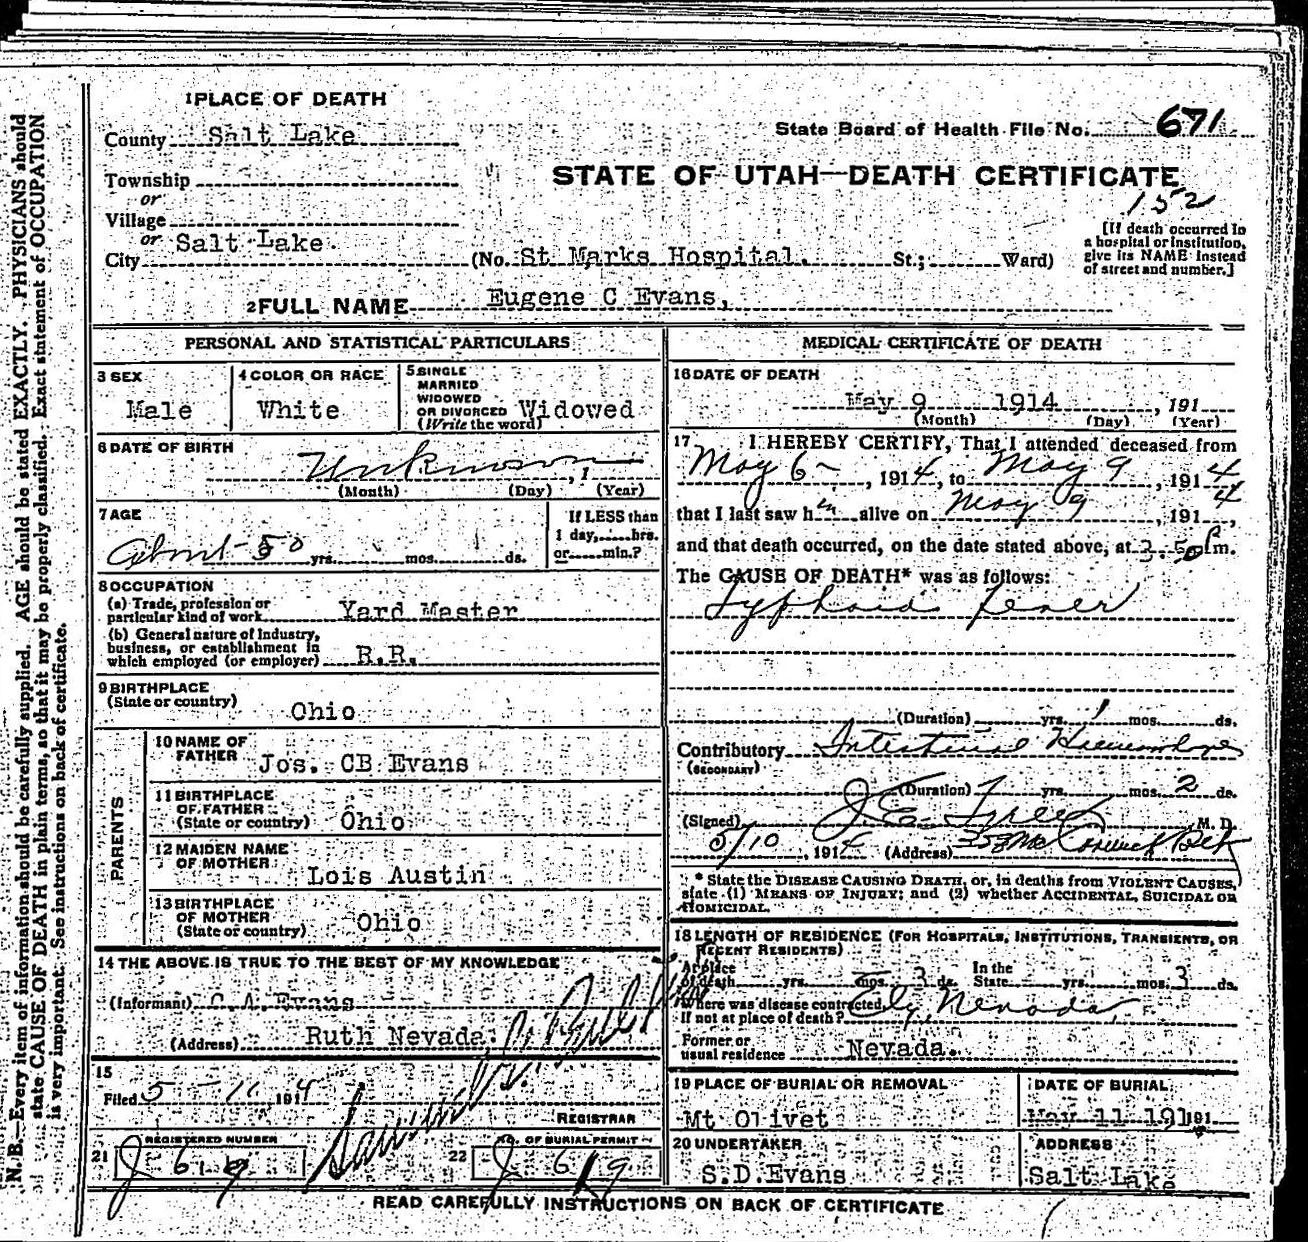 1 PLACE OF DEATH
County Salt Lake
State Board of Health File No. 671
Township
or
STATE OF UTAH—DEATH CERTIFICATE
152
Village
or
City Salt Lake (No. St Marks Hospital. St.; Ward)
[If death occurred in
a hospital or institution,
give its NAME instead
of street and number.]
2 FULL NAME Eugene C Evans,
PERSONAL AND STATISTICAL PARTICULARS
3 SEX
Male
4 COLOR OR RACE
White
5 SINGLE
MARRIED
WIDOWED
OR DIVORCED
(Write the word)
Widowed
6 DATE OF BIRTH
Unknown , 1
(Month) (Day) (Year)
7 AGE
About 50 yrs. mos. ds.
If LESS than
1 day, hrs.
or min.?
8 OCCUPATION
(a) Trade, profession or
particular kind of work Yard Master
(b) General nature of industry,
business, or establishment in
which employed (or employer) R.R.
9 BIRTHPLACE
(State or country)
Ohio
PARENTS
10 NAME OF
FATHER
Jos. CB Evans
11 BIRTHPLACE
OF FATHER
(State or country)
Ohio
12 MAIDEN NAME
OF MOTHER
Lois Austin
13 BIRTHPLACE
OF MOTHER
(State or country)
Ohio
14 THE ABOVE IS TRUE TO THE BEST OF MY KNOWLEDGE
(Informant) C.A. Evans
(Address) Ruth Nevada.
15
Filed 5-11 1914
REGISTRAR
21 REGISTERED NUMBER
J 619
22 NO. OF BURIAL PERMIT
J 619
MEDICAL CERTIFICATE OF DEATH
16 DATE OF DEATH
May 9 1914 , 191
(Month) (Day) (Year)
17 I HEREBY CERTIFY, That I attended deceased from
May 6 , 1914, to May 9 , 1914
that I last saw him alive on May 9 , 1914,
and that death occurred, on the date stated above, at 3.50 Pm.
The CAUSE OF DEATH* was as follows:
Typhoid Fever
(Duration) yrs. 1 mos. ds.
Contributory Intestinal
(SECONDARY)
(Duration) yrs. mos. 2 ds.
(Signed) J.E. M. D.
5/10 , 1914 (Address)
* State the DISEASE CAUSING DEATH, or, in deaths from VIOLENT CAUSES,
state (1) MEANS OF INJURY; and (2) whether ACCIDENTAL, SUICIDAL OR
HOMICIDAL.
18 LENGTH OF RESIDENCE (FOR HOSPITALS, INSTITUTIONS, TRANSIENTS, OR
RECENT RESIDENTS)
At place
of death yrs. mos. 3 ds.
In the
State yrs. mos. 3 ds.
Where was disease contracted,
if not at place of death? Ely, Nevada,
Former or
usual residence Nevada.
19 PLACE OF BURIAL OR REMOVAL
Mt Olivet
DATE OF BURIAL
May 11 191
20 UNDERTAKER
S.D.Evans
ADDRESS
Salt Lake
READ CAREFULLY INSTRUCTIONS ON BACK OF CERTIFICATE
N. B.—Every item of information should be carefully supplied. AGE should be stated EXACTLY. PHYSICIANS should
state CAUSE OF DEATH in plain terms, so that it may be properly classified. Exact statement of OCCUPATION
is very important. See instructions on back of certificate.